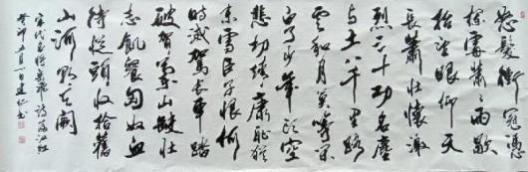 怒髮衝冠憑
欄處蕭蕭雨歇
抬望眼仰天
長嘯壯懷激
烈三十功名塵
與土八千里路
雲和月莫等閑
白了少年頭空
悲切靖康恥猶
未雪臣子恨何
時滅駕長車踏
破賀蘭山缺壯
志飢餐匈奴血
待從頭收拾舊
山河朝天闕
宋代名將岳飛詩滿江紅
癸卯五月書